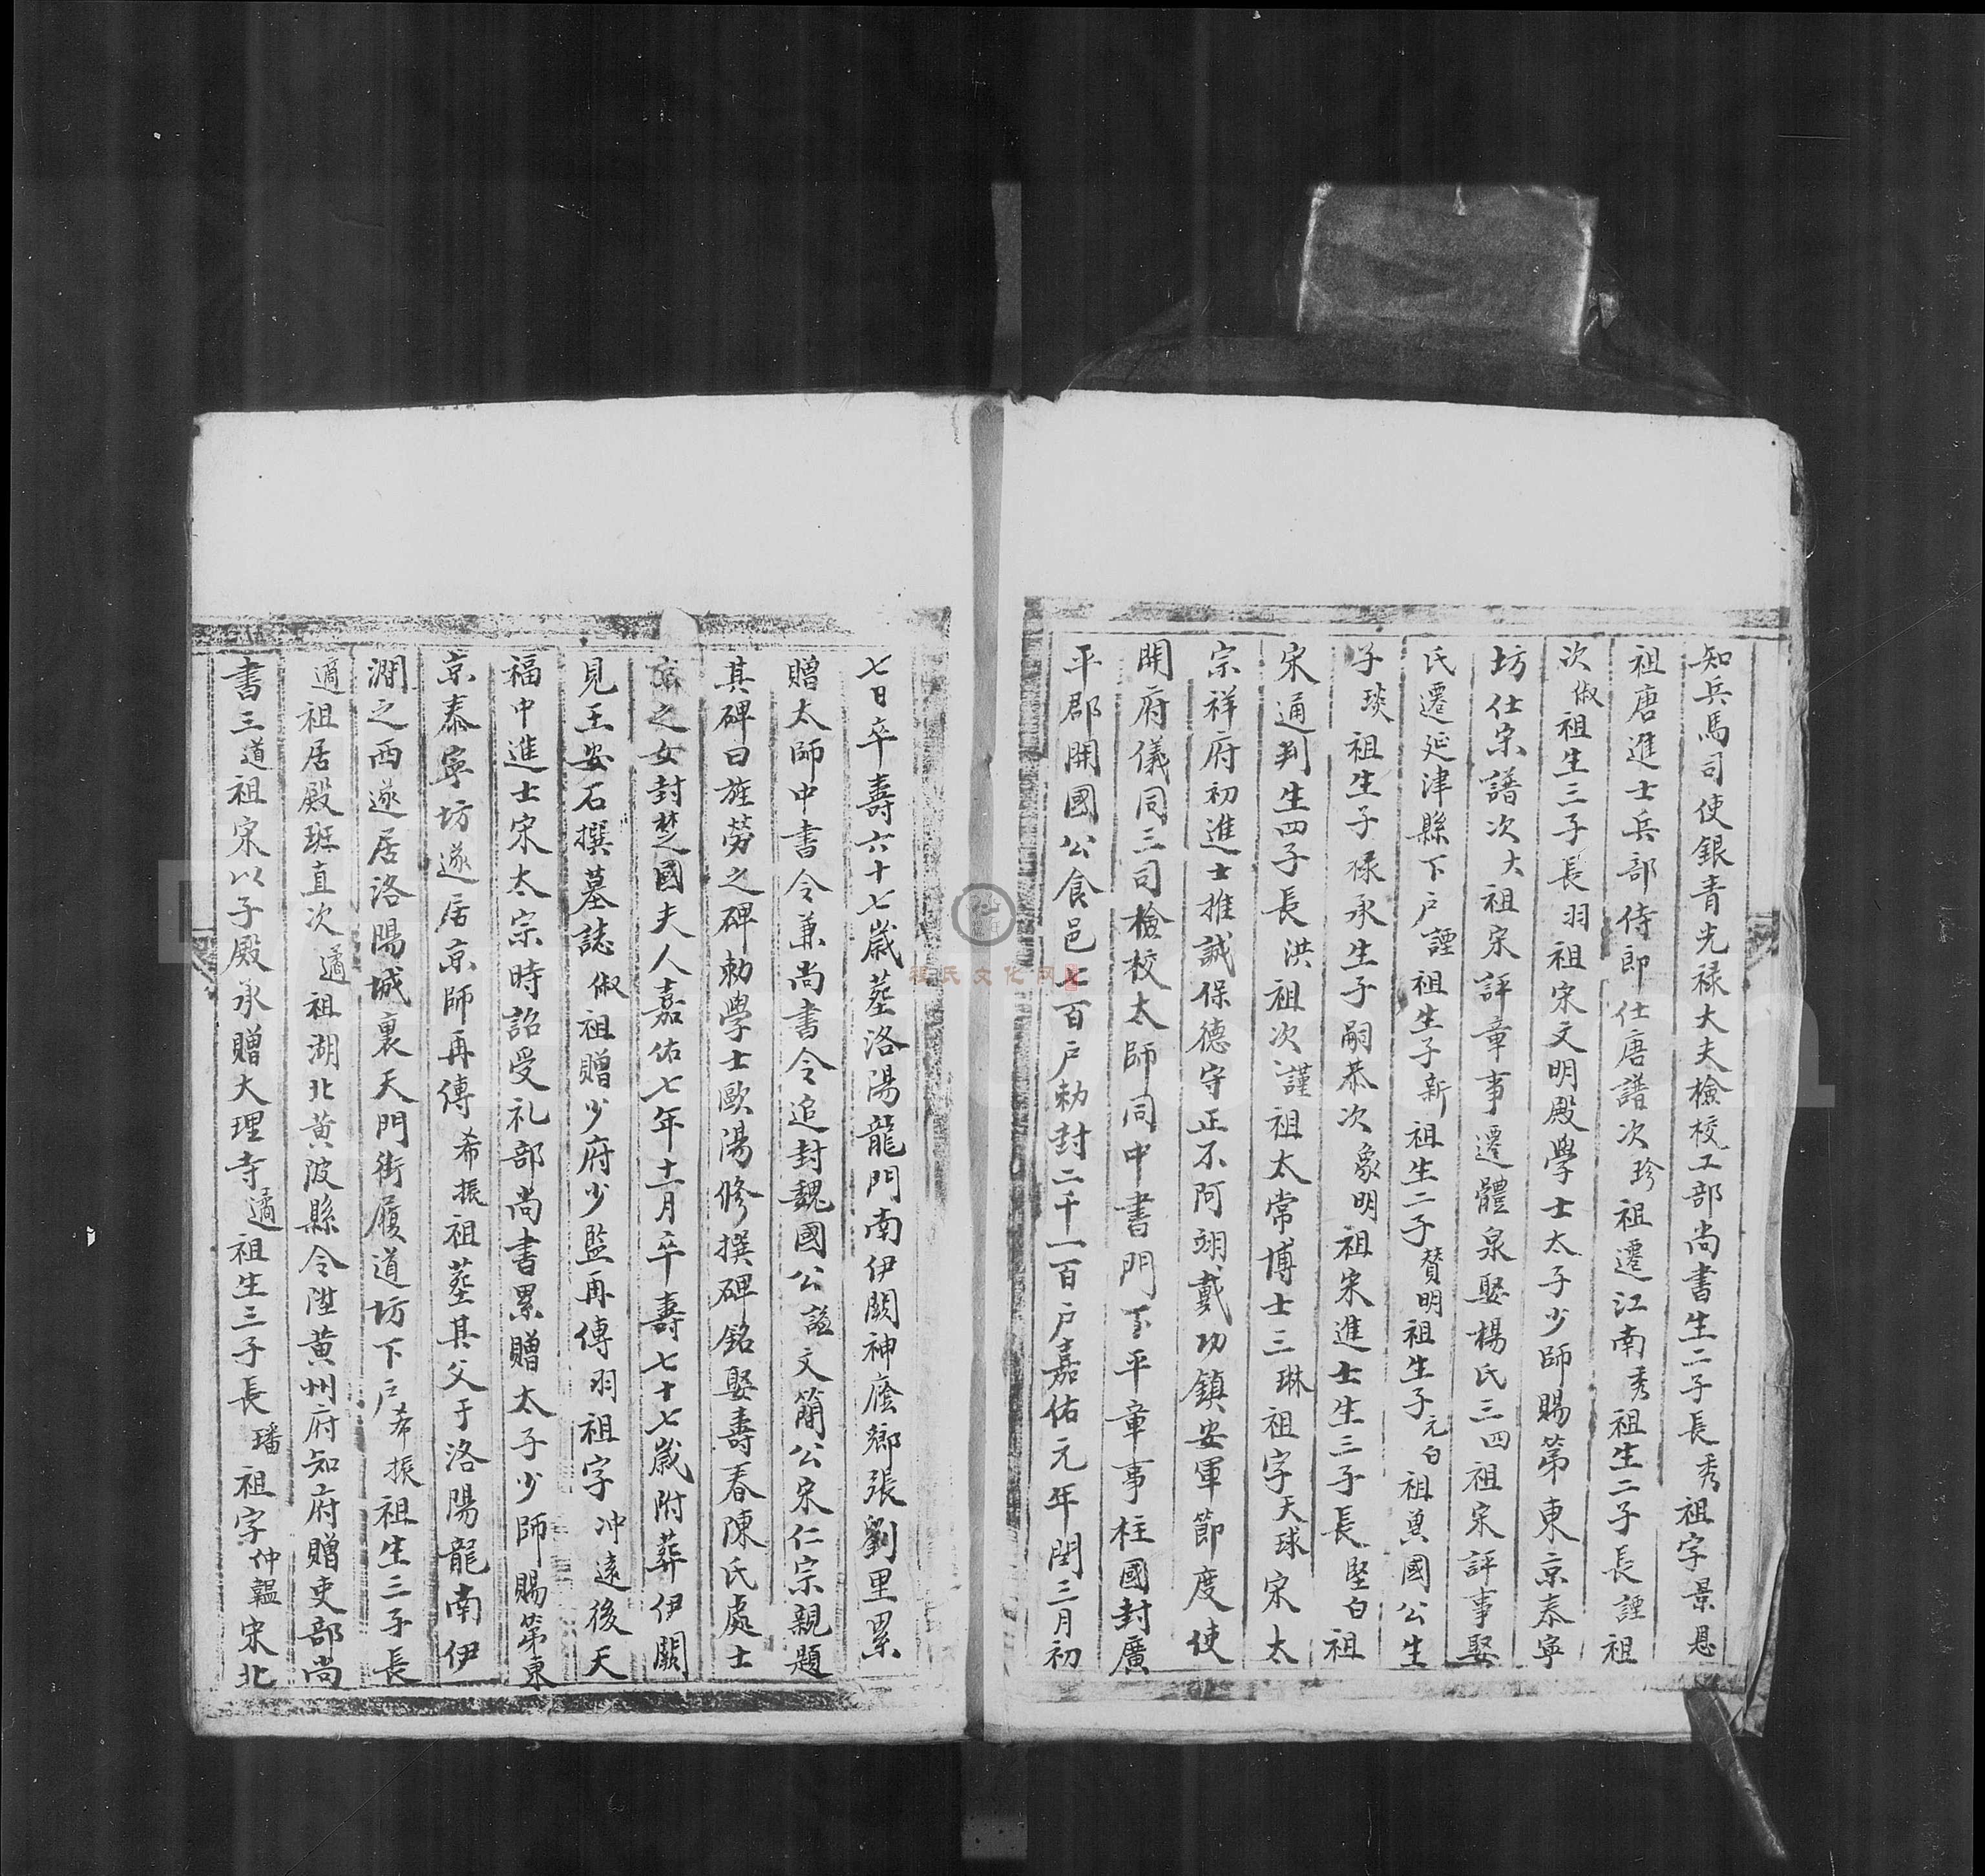 知兵馬司使銀青光禄大夫檢校工部尚書生二子長秀祖字景恩
祖唐進士兵部侍郎仕唐譜次珍祖遷江南秀祖生二子長諲祖
次俶祖生三子長羽祖宋文明殿學士太子少師賜第東京泰寧
坊仕宗譜次大祖宋評章事遷體泉娶楊氏三四祖宋評事娶
氏遷延津縣下户諲祖生子新祖生二子賛明祖生子元白祖兾國公生
子琰祖生子禄承生子嗣恭次象明祖宋進士生三子長堅白祖
宋通判生四子長洪祖次謹祖太常博士三琳祖字天球宋太
宗祥府初進士推誠保德守正不阿翊戴功鎮安軍節度使
開府儀同三司檢校太師同中書門下平章事柱國封廣
平郡開國公食邑七百户勅封二千一百户嘉佑元年閏三月初
七日卒壽六十七歲塟洛湯龍門南伊闕神廕鄉張劉里累
贈太師中書令兼尚書令追封魏國公謚文簡公宋仁宗親題
其碑曰旌勞之碑勅學士歐湯修撰碑銘娶壽春陳氏處士
之女封楚國夫人嘉佑七年十一月卒壽七十七歲附葬伊闕
見王安石撰墓誌俶祖贈少府少監再傳羽祖字冲遠後天
福中進士宋太宗時詔受礼部尚書累贈太子少師賜第東
京泰寧坊遂居京師再傳希振祖塟其父于洛陽龍南伊
澗之西遂居洛陽城裏天門街履道坊下户希振祖生三子長
適祖居殿班直次遹祖湖北黄陂縣令陞黄州府知府贈吏部尚
書三道祖宋以子殿承贈大理寺遹祖生三子長璠祖字仲韞宋北
程氏文化网